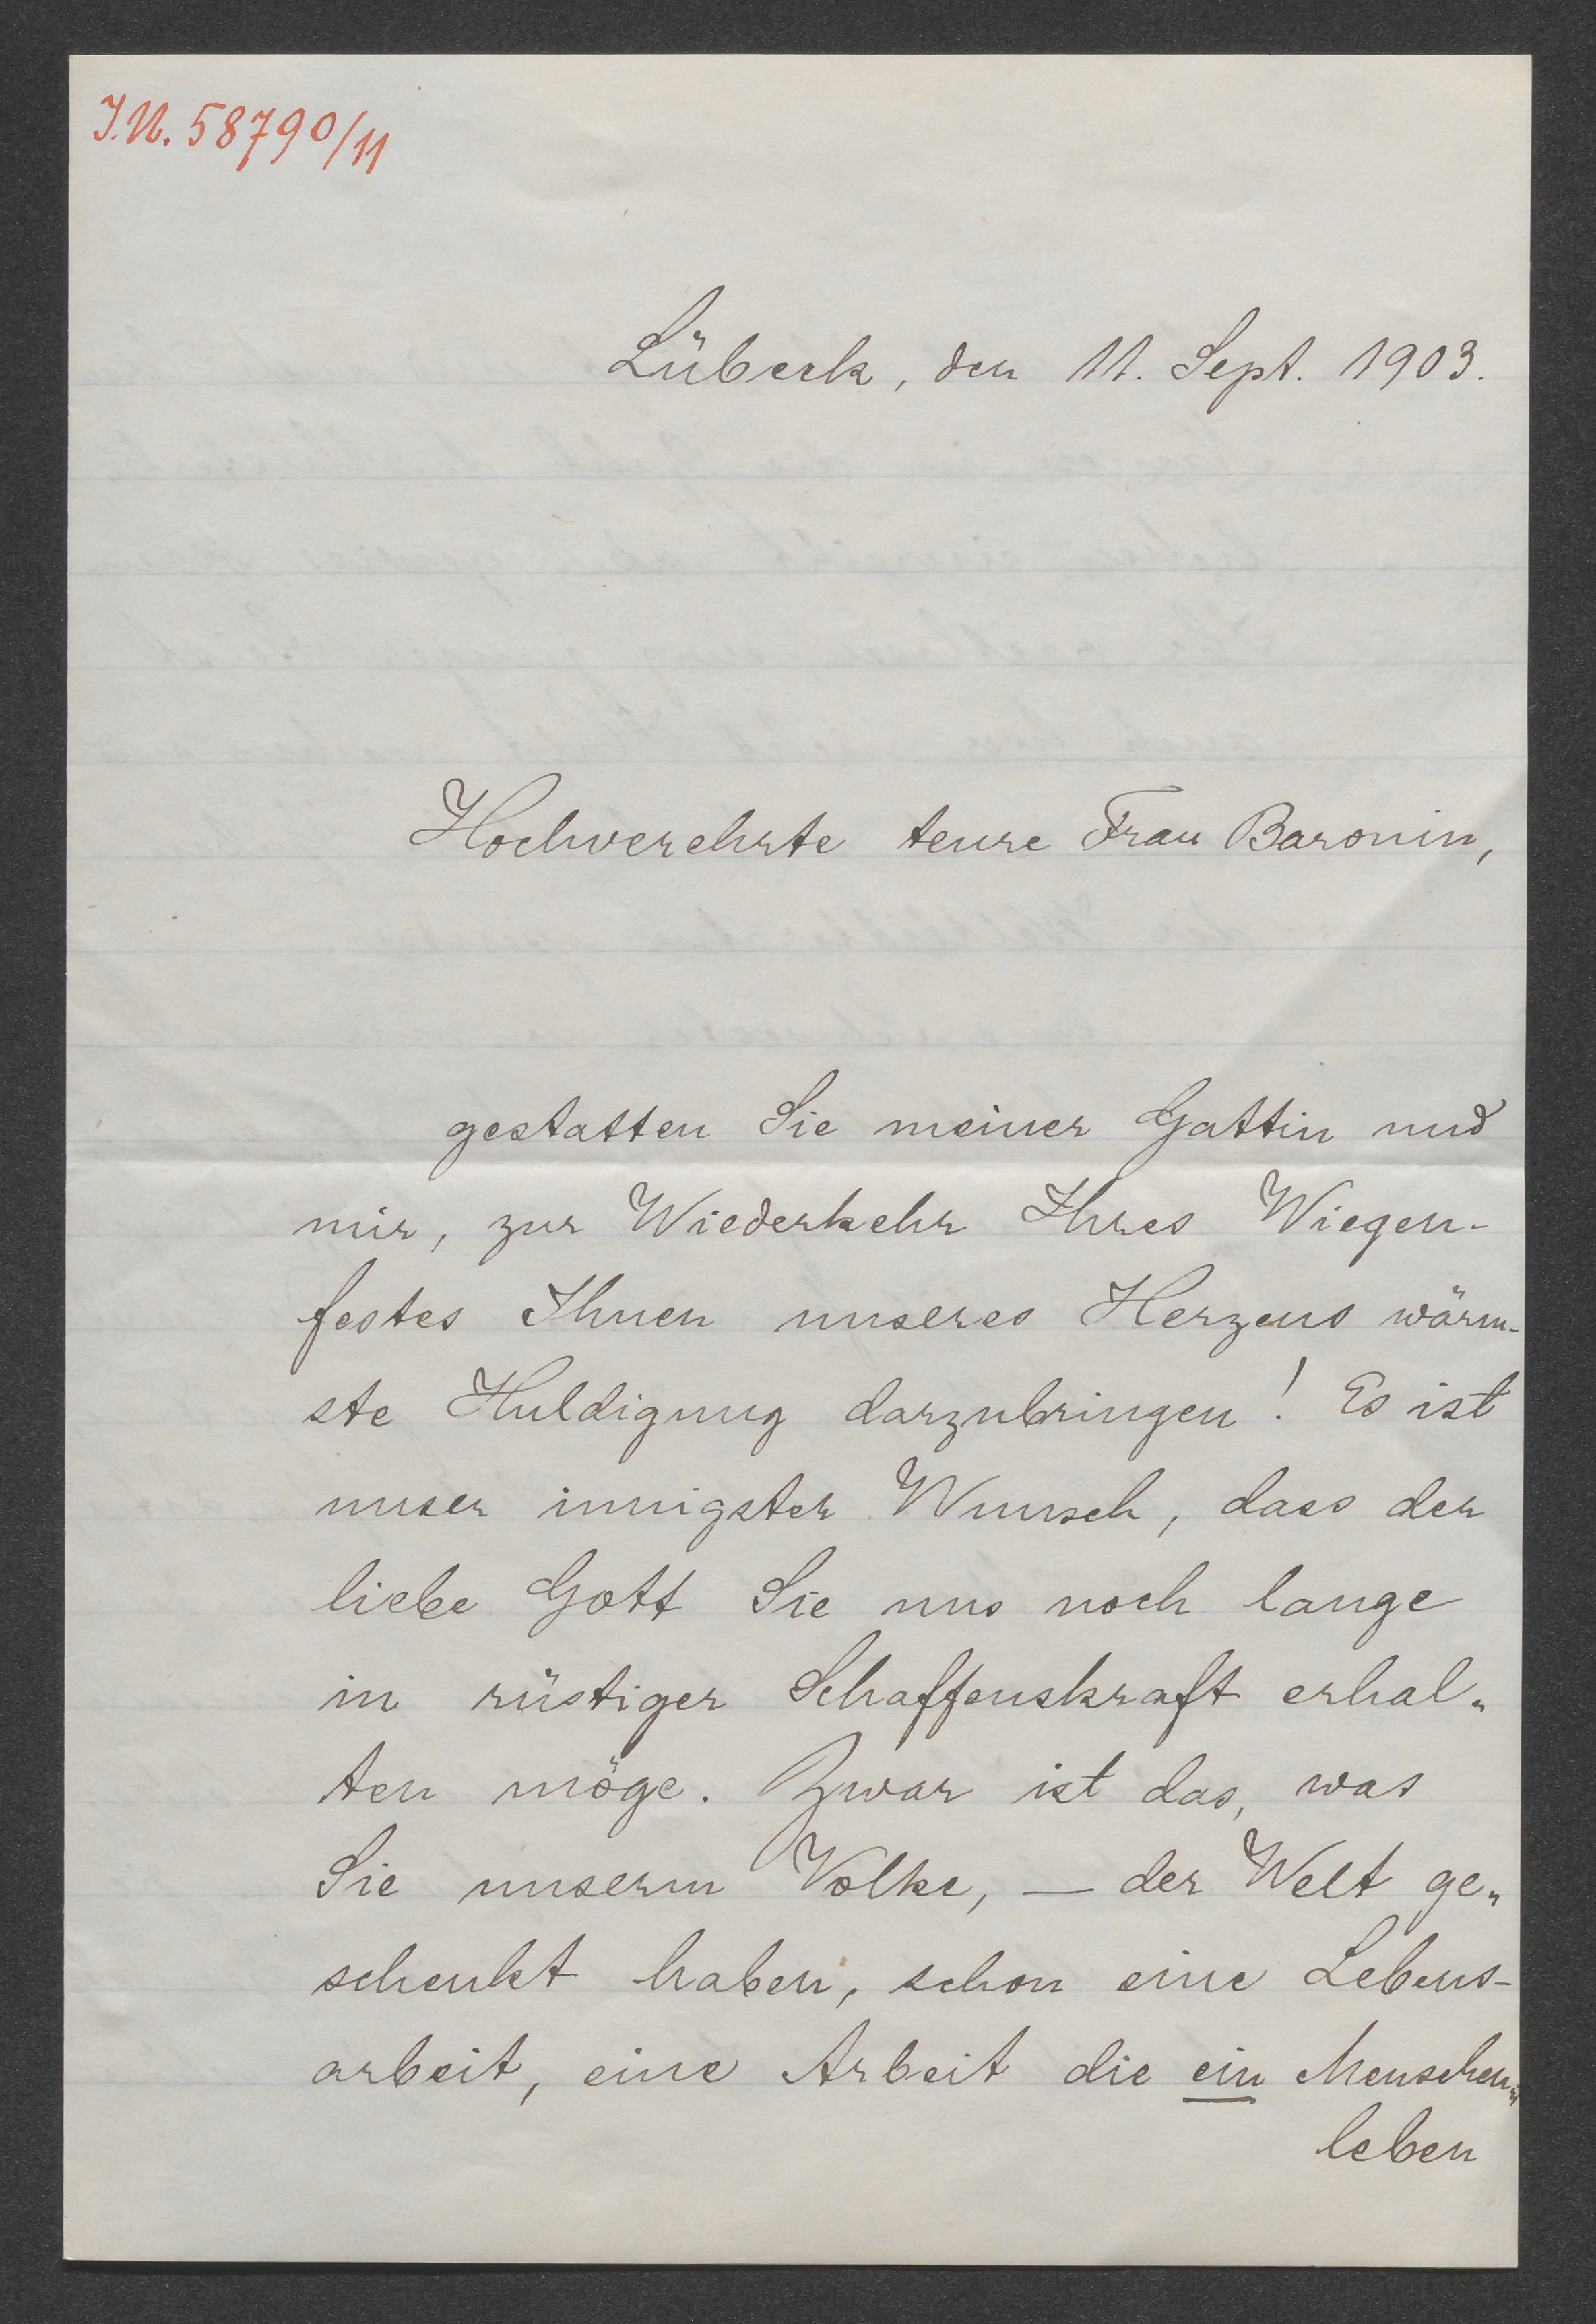 J.N. 58790/11
Lübeck, den 11. Sept. 1903.
Hochverehrte teure Frau Baronin,
gestatten Sie meiner Gattin und
mir, zur Wiederkehr Ihres Wiegen-
festes Ihnen unseres Herzens wärm-
ste Huldigung darzubringen! Es ist
unser innigster Wunsch, dass der
liebe Gott Sie uns noch lange
in rüstiger Schaffenskraft erhal-
ten möge. Zwar ist das, was
Sie unserm Volke, — der Welt ge-
schenkt haben, schon eine Lebens-
arbeit, eine Arbeit die ein Menschen-
leben